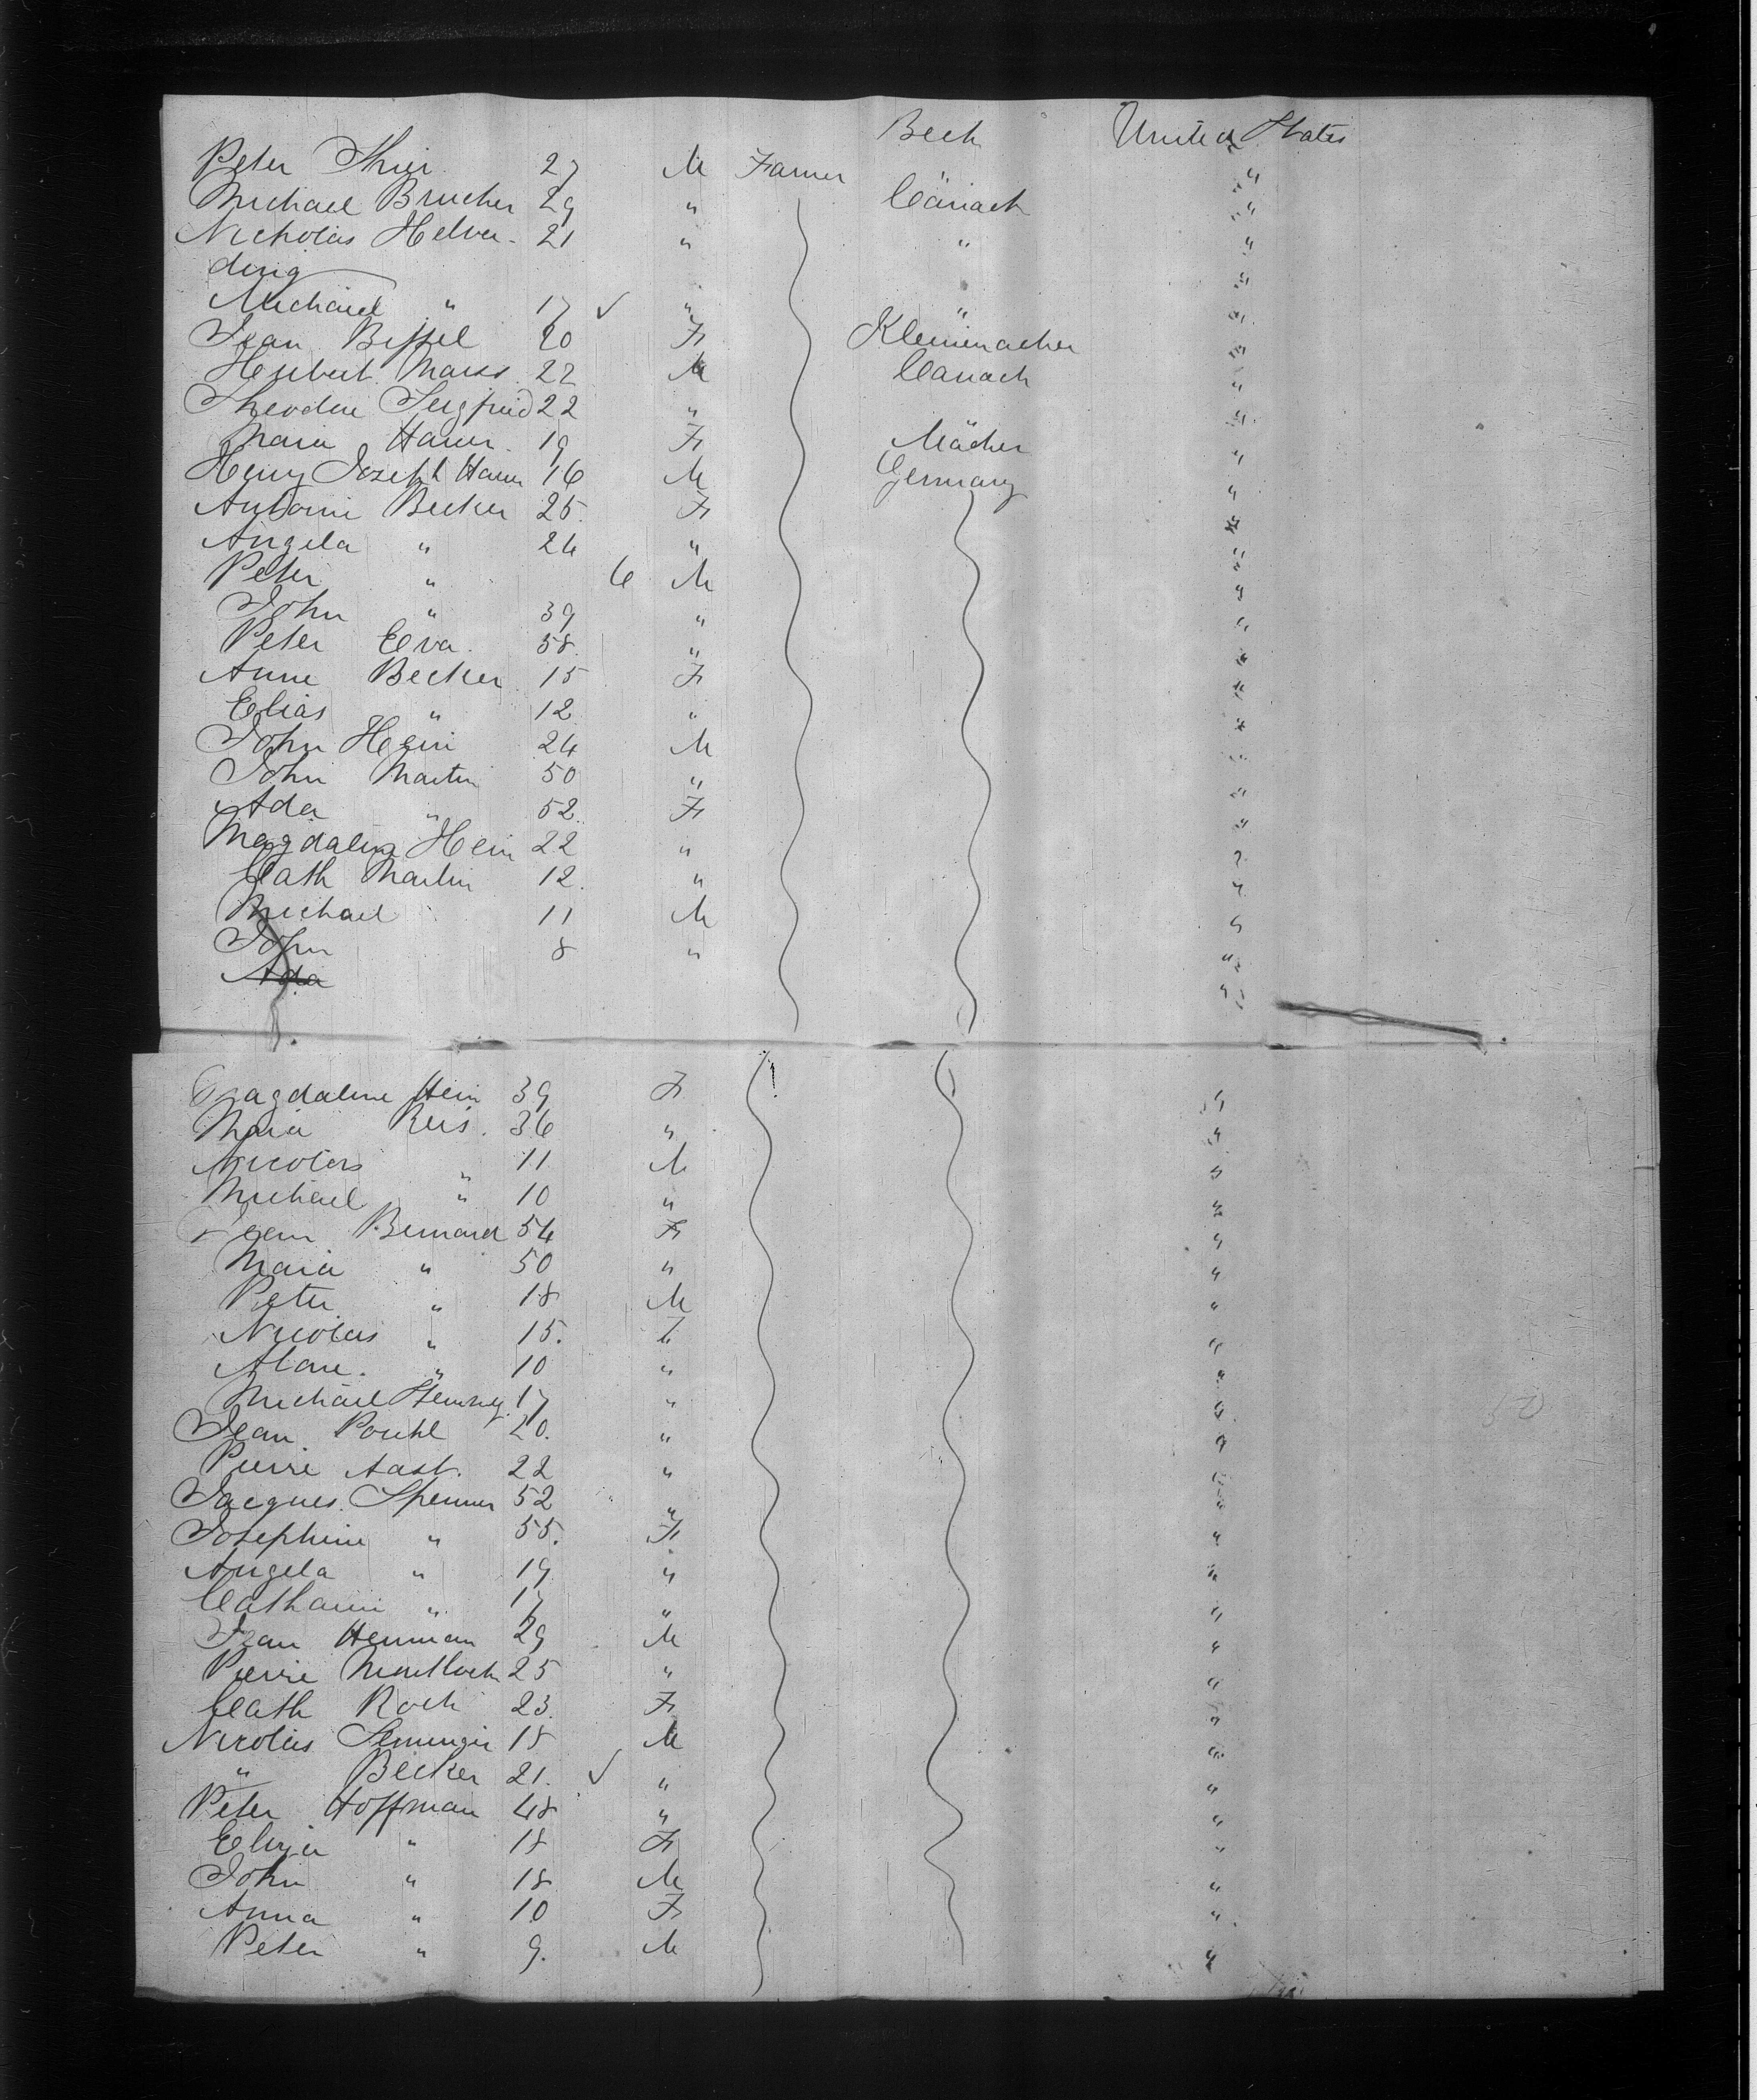 Bech United States
Peter Thier 27 M Farmer "
Michael Brucher 29 " Cänach "
Nicholas Helver- 21 " " "
ding "
Michael " 17 ✓ " " "
Jean Bissel 20 F Kleinmacher "
Herbert Maiss 22 M Canach "
Theodore Siegfried 22 " "
Maria Hamm 19 F Mächer "
Henry Joseph Hamm 16 M Germany "
Antoine Becker 25 F "
Angela " 24 " "
Peter " 6 M "
John " 39 " "
Peter Eva 58 " "
Anne Becker 15 F "
Elias " 12 " "
John Hein 24 M "
John Martin 50 " "
Ada " 52 F "
Magdalena Hein 22 " "
Cath Martin 12 " "
Michael 11 M "
John 8 " "
Ada "
Magdalene Hein 39 F "
Maria Reis 36 " "
Nicolas " 11 M "
Michael " 10 " "
Jean Bernard 54 F "
Maria " 50 " "
Peter " 18 M "
Nicolas " 15 "
" 10 " "
Michael 17 " "
Jean 20 " "
Pierre Aast 22 " "
Jacques 52 " "
Josephine " 55 F "
Angela " 19 " "
Catharin " 17 " "
Jean Herman 29 M "
Pierre 25 " "
Cath Koch 23 F "
Nicolas 18 M "
" Becker 21 ✓ " "
Peter Hoffman 48 " "
" 18 F "
John " 18 M "
Anna " 10 F "
Peter " 9 M "